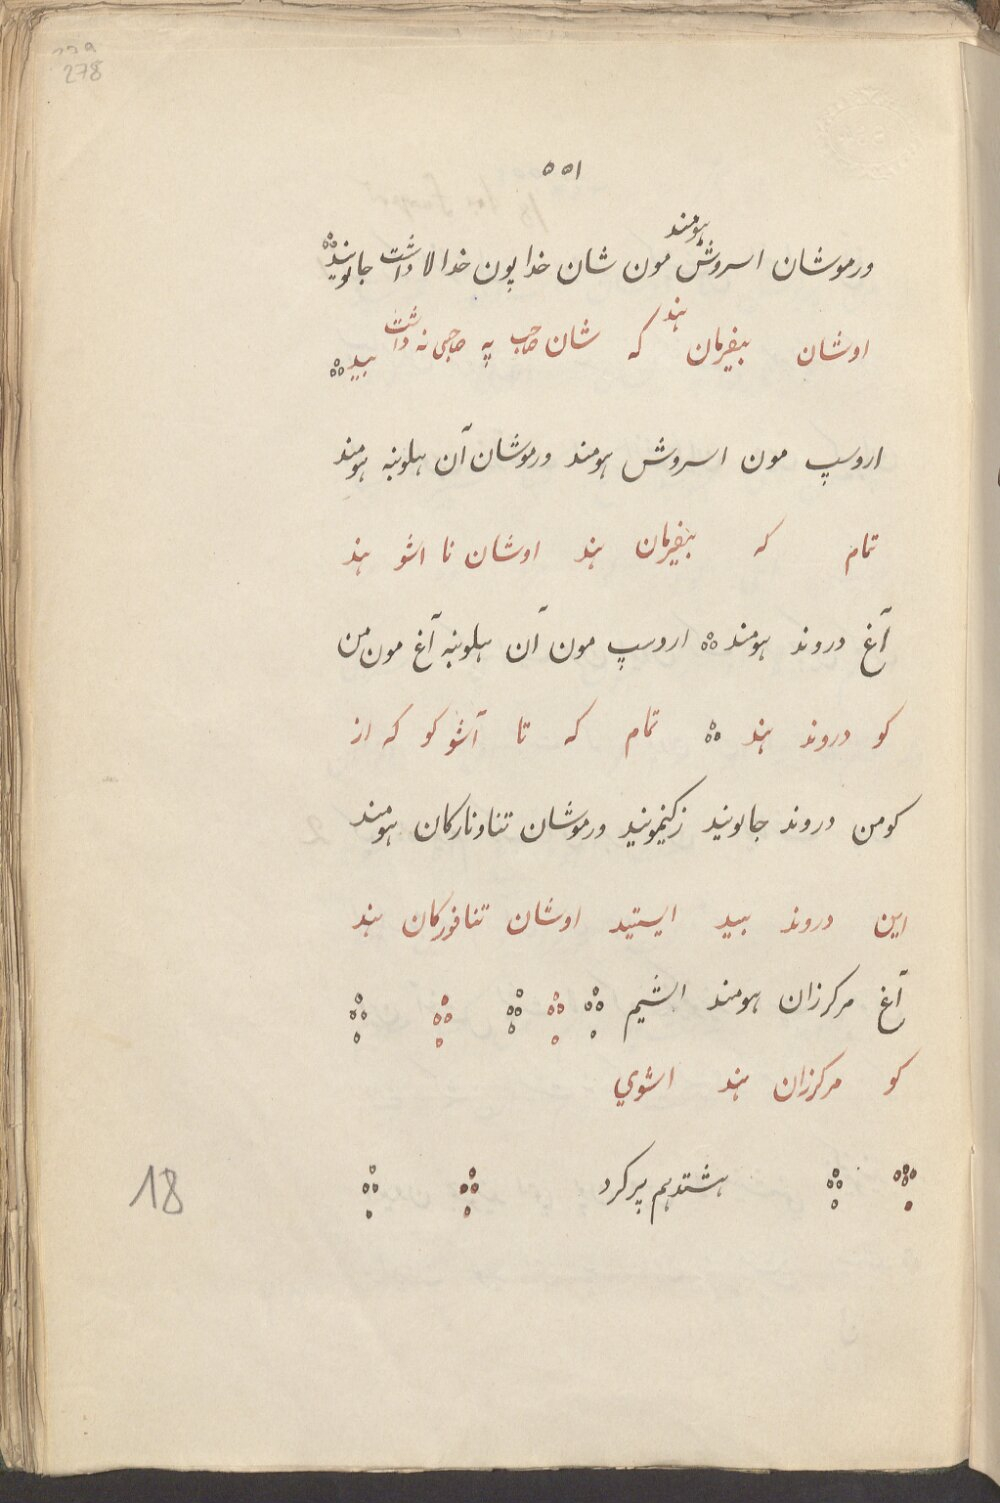 278
۵۵۱
هومند
ورموشان اسروش مون شان خدا پون خدا لا داشت جانونید
هند
اوشان بیفرمان که شان صاحب په صاحبی نه داشت بید
اروسپ مون اسروش هومند ورموشان آن هلوبنه هومند
تمام که بیفرمان هند اوشان نا اشو هند
آغ دروند هومند اروسپ مون آن هلوبنه آغ مون من
کو دروند هند تمام که تا آشو کو که از
کومن دروند جانونید زکیمونید ورموشان تناونارکان هومند
این دروند بید ایستید اوشان تنافورکان هند
آغ مرکرزان هومند اشیم
کو مرکرزان هند اشوي
18
هشتدهم پرکرد